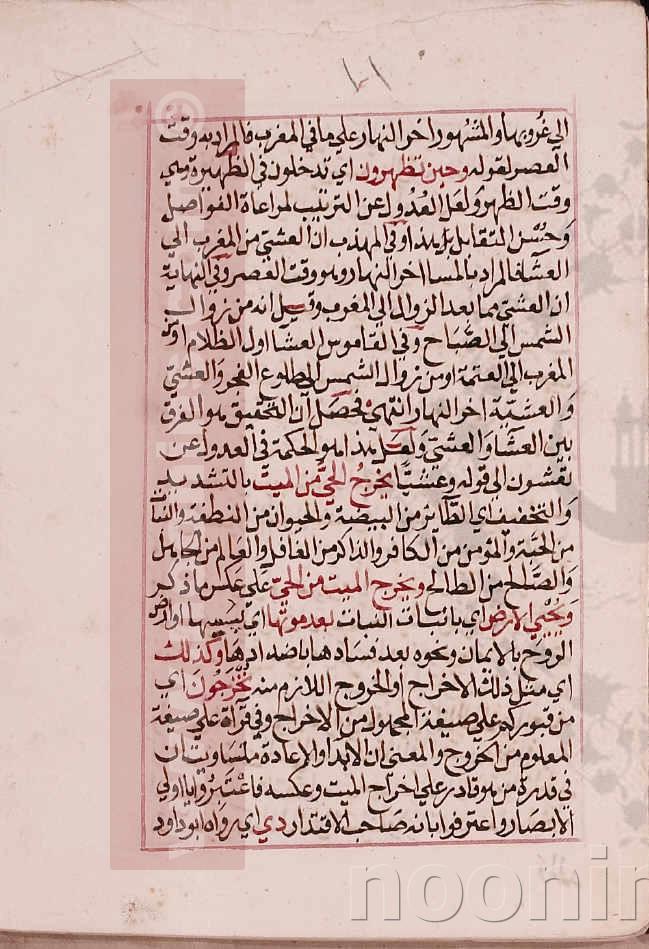 الي غُروبها والمشهور اخر النهار علي ما في المغرب فالمراد به وقت
العصر لقوله وحين تظهرون اي تدخلون في الظهيرة وهي
وقت الظهر ولعل العُدول عن الترتيب لمراعاة الفواصل
وحُسْن التقابل بل هذا وفي المهذب ان العشي من المغرب الي
العشا فالمراد بالمسا اخر النهار وهو وقت العصر وفي النهاية
ان العشي مما بعد الزوال الي المغرب وقيل انه من زوال
الشمس الي الصَّباح وفي القاموس العشا اول الظلام او من
المغرب الي العتمة او من زوال الشمس الي طلوع الفجر والعشي
والعشيّة اخر النهار انتهي فحصل ان التحقيق هو الفرق
بين العشا والعشي ولعل هذا هو الحكمة في العدول عن
تعشون الي قوله وعشيّا يخرج الحيّ من الميت بالتشديد
والتخفيف اي الطاير من البيضة والحيوان من النطفة والنبات
من الحبة والمؤمن من الكافر والذاكر من الغافل والعالم من الجاهل
والصَّالح من الطالح ويخرج الميت من الحيّ علي عكس ما ذكر
ويُحْيي الارض اي بانبات النبات بعد موتها اي يبسها او ارض
الروح بالايمان ونحوه بعد فسادها باضدادها وكذلك
اي مثل ذلك الاخراج او الخروج اللازم منه تُخرَجُونَ اي
من قبوركم علي صيغة المجهول من الاخراج وفي قراة علي صيغة
المعلوم من الخروج والمعني ان الابدا والاعادة متساويتان
في قدرة من هو قادر علي اخراج الميت وعكسه فاعتبروا يا اولي
الابصار واعترفوا بانه صاحب الاقتدار دي اي رواه ابو داود
noonin